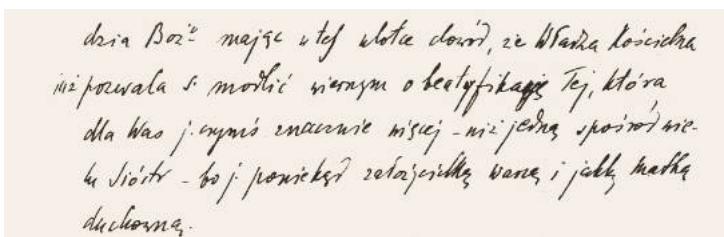 dzia Boż= mając w tej ulotce dowód, że Władza Kościelna
już pozwala s. modlić wiernym o beatyfikację Tej, która
dla Was j. czymś znacznie więcej - niż jedną spośród wie-
lu Sióstr - bo j. poniekąd założycielką waszą i jakby matką
duchowną.